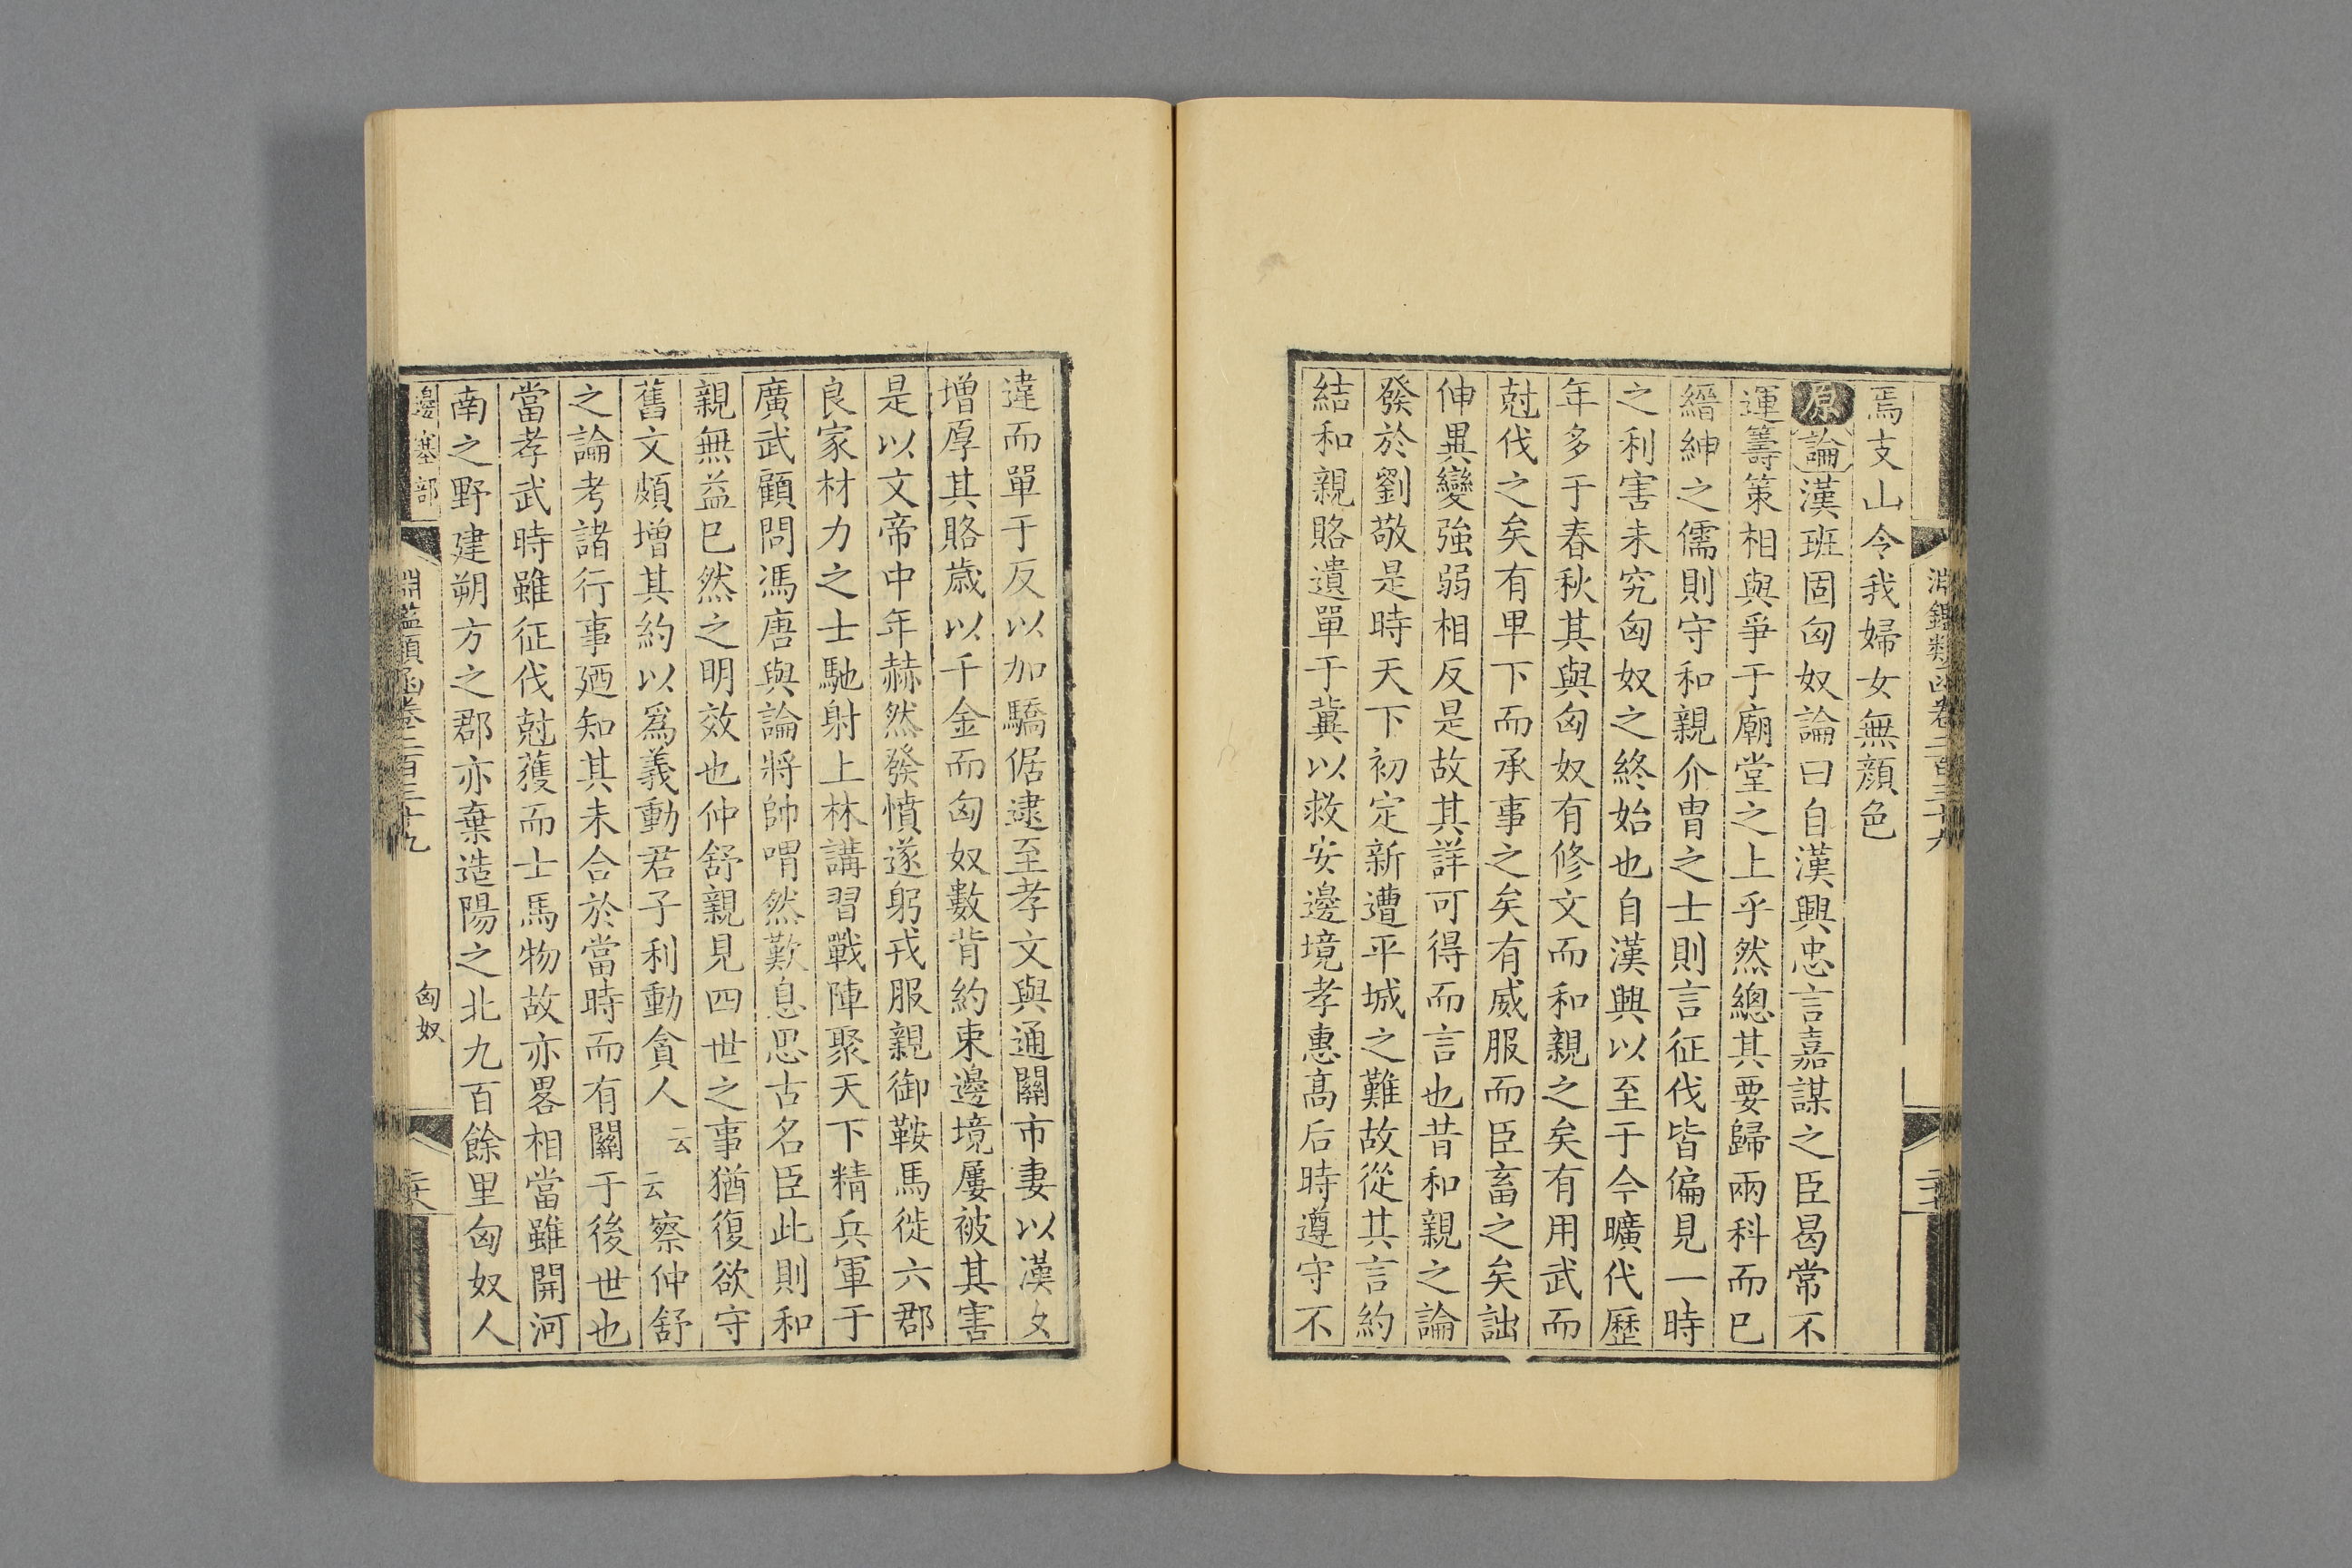 焉支山令我婦女無顔色
原論漢班固匈奴論曰自漢興忠言嘉謀之臣曷常不
運籌策相與爭于廟堂之上乎然總其要歸兩科而已
縉紳之儒則守和親介胄之士則言征伐皆偏見一時
之利害未究匈奴之終始也自漢興以至于今曠代歷
年多于春秋其與匈奴有修文而和親之矣有用武而
尅伐之矣有卑下而承事之矣有威服而臣畜之矣詘
伸異變強弱相反是故其詳可得而言也昔和親之論
發於劉敬是時天下初定新遭平城之難故從其言約
結和親賂遺單于冀以救安邊境孝惠高后時遵守不
違而單于反以加驕倨逮至孝文與通關市妻以漢女
增厚其賂歲以千金而匈奴數背約束邊境屢被其害
是以文帝中年赫然發憤遂躬戎服親御鞍馬從六郡
良家材力之士馳射上林講習戰陣聚天下精兵軍于
廣武顧問馮唐與論將帥喟然歎息思古名臣此則和
親無益已然之明效也仲舒親見四世之事猶復欲守
舊文頗增其約以爲義動君子利動貪人云云察仲舒
之論考諸行事廼知其未合於當時而有闕于後世也
當孝武時雖征伐尅獲而士馬物故亦畧相當雖開河
南之野建朔方之郡亦棄造陽之北九百餘里匈奴人
邊塞部
淵鑑類函卷二百三十九
匈奴